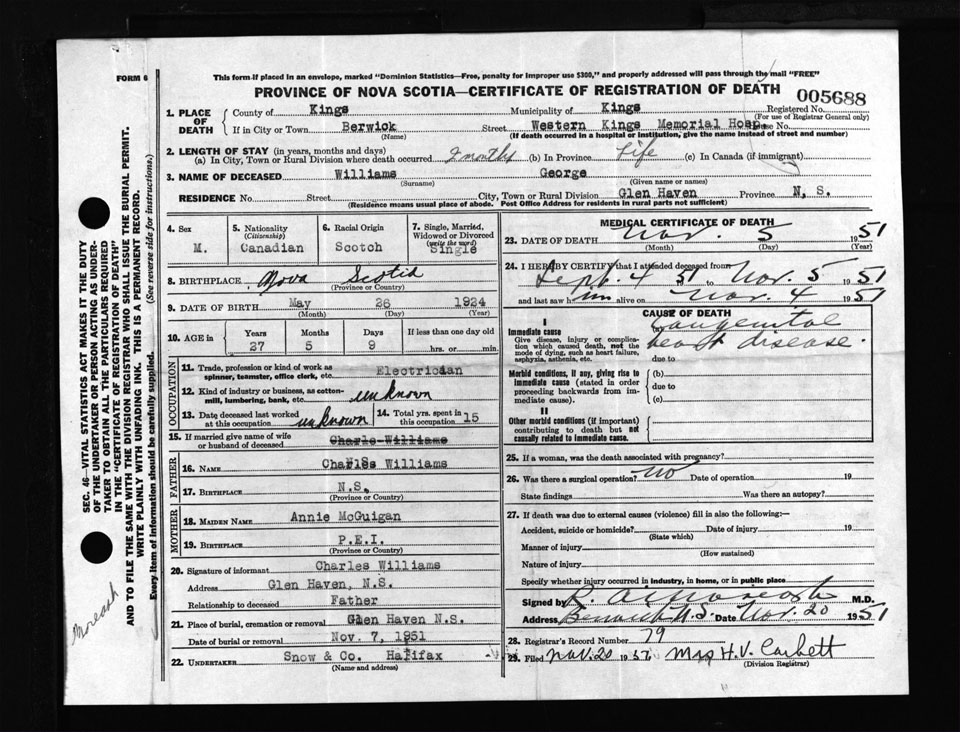 FORM 6
This form if placed in an envelope, marked "Dominion Statistics—Free, penalty for improper use $300," and properly addressed will pass through the mail "FREE"
PROVINCE OF NOVA SCOTIA—CERTIFICATE OF REGISTRATION OF DEATH
005688
1. PLACE OF DEATH { County of Kings Municipality of Kings Registered No.
(For use of Registrar General only)
If in City or Town Berwick Street Western Kings Memorial Hosp. House No.
(Name) (If death occurred in a hospital or institution, give the name instead of street and number)
2. LENGTH OF STAY (in years, months and days)
(a) In City, Town or Rural Division where death occurred 2 months (b) In Province Life (c) In Canada (if immigrant)
3. NAME OF DECEASED Williams George
(Surname) (Given name or names)
RESIDENCE No. Street City, Town or Rural Division Glen Haven Province N. S.
(Residence means usual place of abode. Post Office Address for residents in rural parts not sufficient)
4. Sex
M.
5. Nationality
(Citizenship)
Canadian
6. Racial Origin
Scotch
7. Single, Married, Widowed or Divorced
(write the word)
Single
8. BIRTHPLACE Nova Scotia
(Province or Country)
9. DATE OF BIRTH May 26 1924
(Month) (Day) (Year)
10. AGE in { Years Months Days If less than one day old
27 5 9 hrs. or min.
OCCUPATION
11. Trade, profession or kind of work as spinner, teamster, office clerk, etc. Electrician
12. Kind of industry or business, as cotton-mill, lumbering, bank, etc. unknown
13. Date deceased last worked at this occupation unknown
14. Total yrs. spent in this occupation 15
15. If married give name of wife or husband of deceased Charle Williams
FATHER
16. NAME Charles Williams
17. BIRTHPLACE N.S.
(Province or Country)
MOTHER
18. MAIDEN NAME Annie McGuigan
19. BIRTHPLACE P.E.I.
(Province or Country)
20. Signature of informant Charles Williams
Address Glen Haven, N.S.
Relationship to deceased Father
21. Place of burial, cremation or removal Glen Haven N.S.
Date of burial or removal Nov. 7, 1951
22. UNDERTAKER Snow & Co. Halifax
(Name and address)
MEDICAL CERTIFICATE OF DEATH
23. DATE OF DEATH Nov. 5 1951
(Month) (Day) (Year)
24. I HEREBY CERTIFY that I attended deceased from
Sept. 4 51 to Nov. 5 1951
and last saw him alive on Nov. 4 1951
CAUSE OF DEATH
I
Immediate cause
Give disease, injury or complication which caused death, not the mode of dying, such as heart failure, asphyxia, asthenia, etc.
(a) Congenital heart disease.
due to
Morbid conditions, if any, giving rise to immediate cause (stated in order proceeding backwards from immediate cause).
(b)
due to
(c)
II
Other morbid conditions (if important) contributing to death but not causally related to immediate cause.
25. If a woman, was the death associated with pregnancy?
26. Was there a surgical operation? No Date of operation 19
State findings Was there an autopsy?
27. If death was due to external causes (violence) fill in also the following:—
Accident, suicide or homicide? Date of injury 19
(State which)
Manner of injury
(How sustained)
Nature of injury
Specify whether injury occurred in industry, in home, or in public place
Signed by M.D.
Address Berwick N.S. Date Nov. 20 1951
28. Registrar's Record Number 79
29. Filed Nov. 20 1951 Mrs H.V. Corbett
(Division Registrar)
SEC. 46—VITAL STATISTICS ACT MAKES IT THE DUTY
OF THE UNDERTAKER OR PERSON ACTING AS UNDER-
TAKER TO OBTAIN ALL THE PARTICULARS REQUIRED
IN THE "CERTIFICATE OF REGISTRATION OF DEATH"
AND TO FILE THE SAME WITH THE DIVISION REGISTRAR WHO SHALL ISSUE THE BURIAL PERMIT.
WRITE PLAINLY WITH UNFADING INK. THIS IS A PERMANENT RECORD.
Every item of information should be carefully supplied. (See reverse side for instructions.)